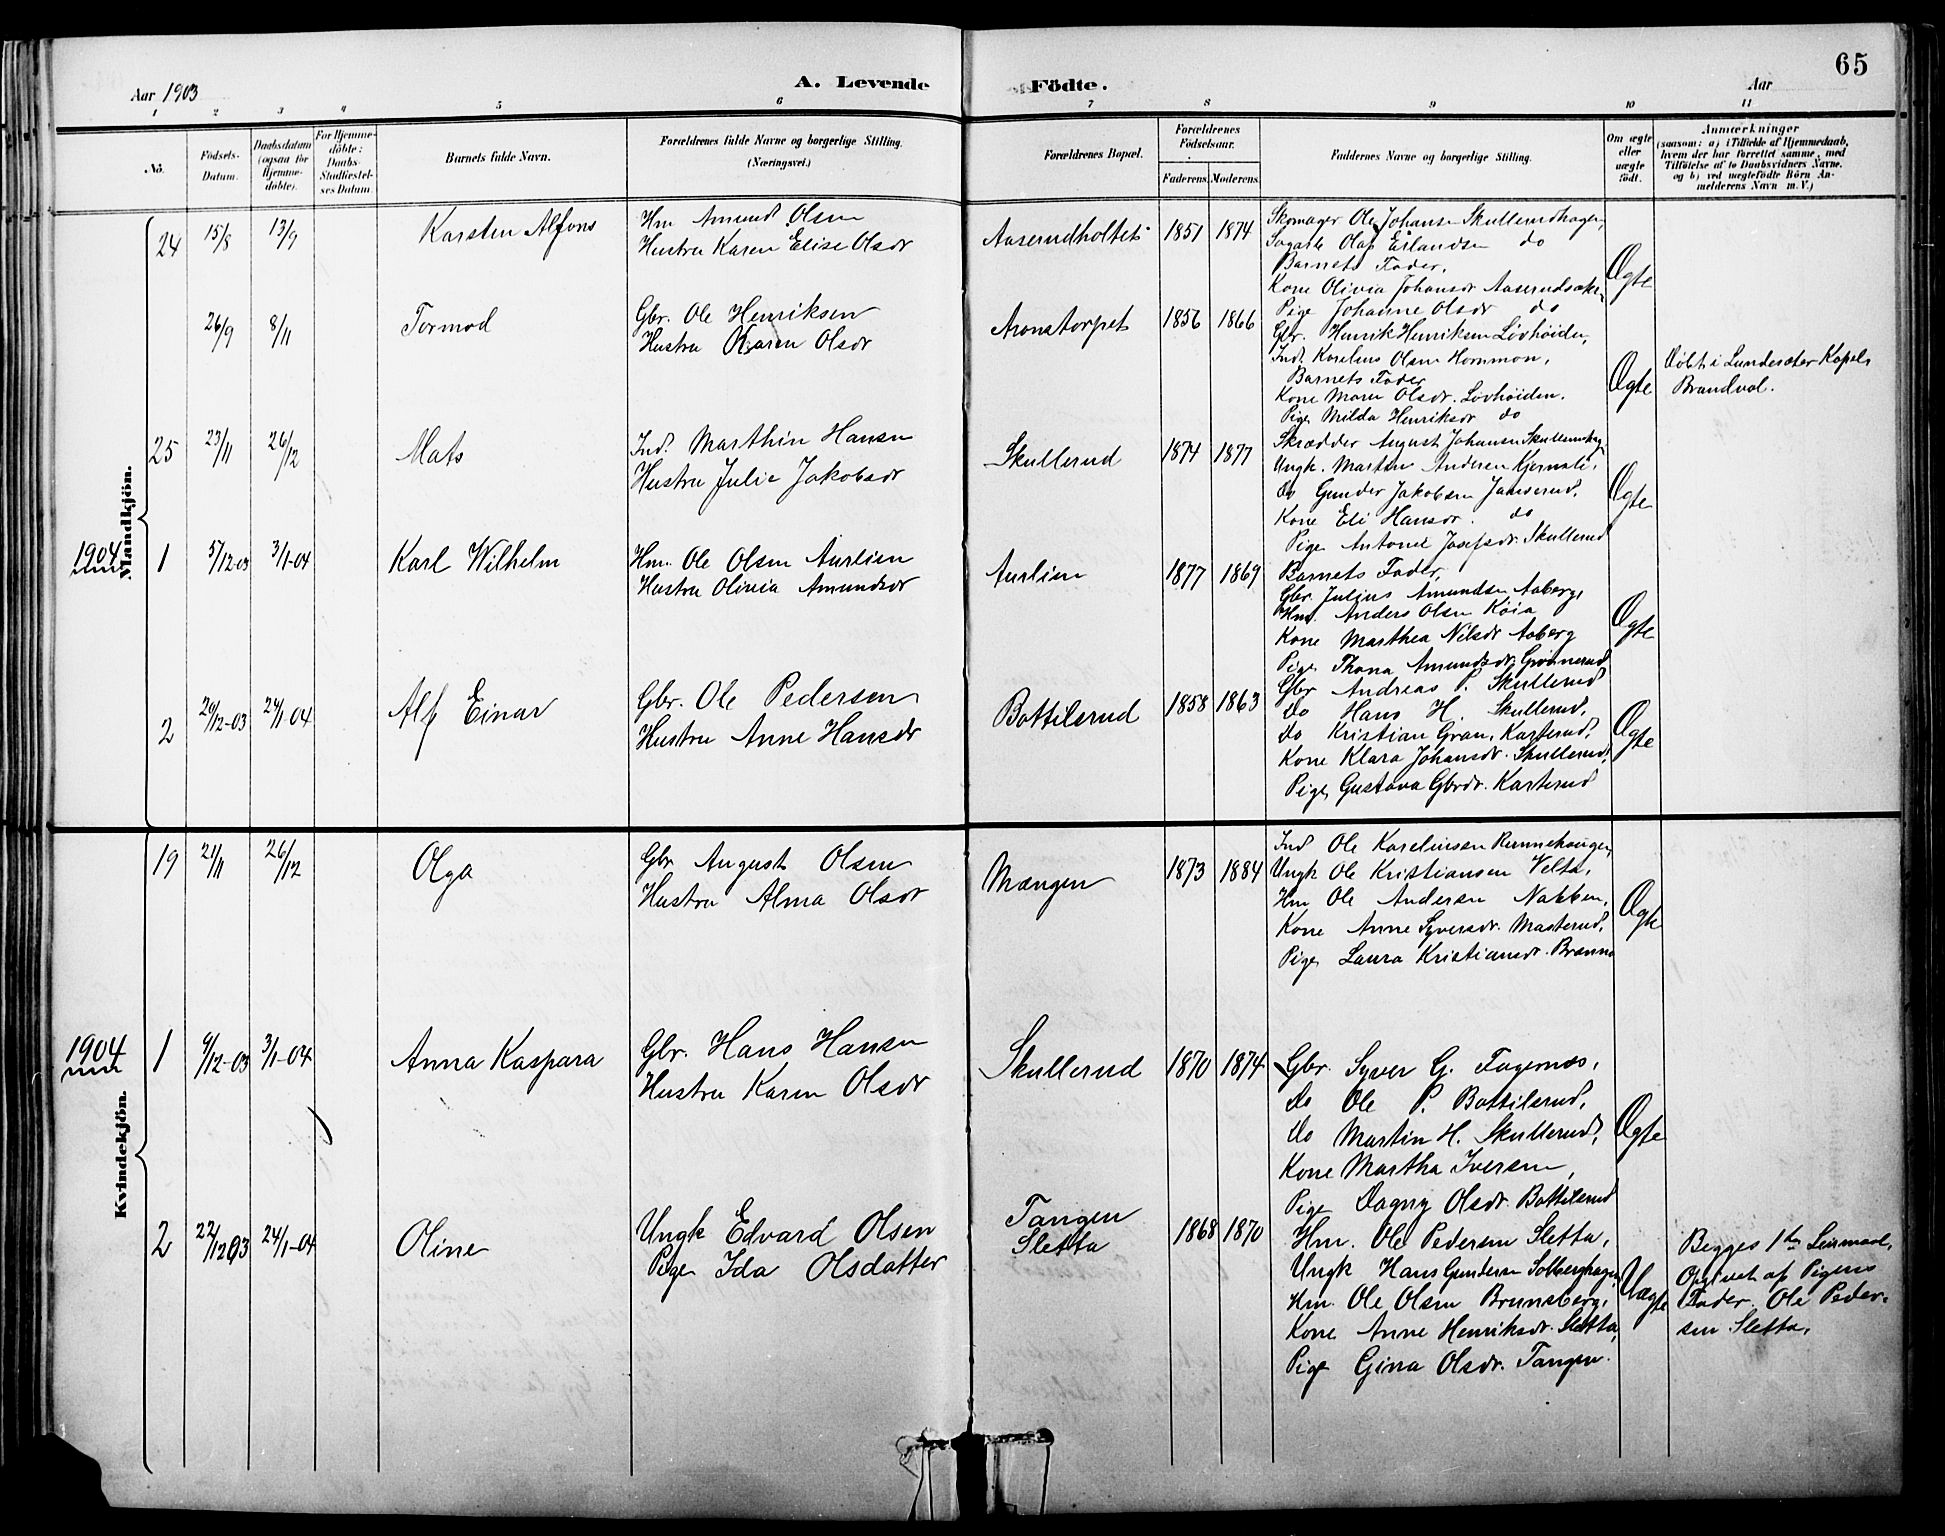 65
Aar 1903
A. Levende Födte.
Aar
1 2 3 4 5 6 7 8 9 10 11
No.
Födsels-Datum.
Daabsdatum (ogsaa for Hjemme-döbte).
For Hjemme-döbte: Daabs-Stadfæstel-ses Datum.
Barnets fulde Navn.
Forældrenes fulde Navne og borgerlige Stilling. (Næringsvei.)
Forældrenes Bopæl.
Forældrenes Födselsaar.
Faderens. Moderens.
Faddernes Navne og borgerlige Stilling.
Om ægte eller uægte födt.
Anmærkninger
(saasom: a) i Tilfælde af Hjemmedaab, hvem der har forrettet samme, med Tilföielse af to Daabsvidners Navne, og b) ved uægtefödte Börn An-melderens Navn m. V.)
Mandkjön.
24 15/8 13/9 Karsten Alfons
Hm Amund Olsen
Hustru Karen Elise Olsdr
Aaserudholtet 1851 1874
Skomager Ole Johansen Skullerudhagen,
Sagarb Olaf Erlandsen do
Barnets Fader,
Kone Olivia Johansdr
Pige Johanne Olsdr do
Ægte
26/9 8/11 Tormod
Gbr. Ole Henriksen
Hustru Karen Olsdr
Aronstorpet 1856 1866
Gbr. Henrik Henriksen Løvhøiden,
Ind. Karelius Olsen Hornmon,
Barnets Fader
Kone Maren Olsdr. Løvhøiden.
Pige Milda Henriksdr do
Ægte
Døbt i Lundersæter Kapel,
Brandval.
25 23/11 26/12 Mats
Ind. Marthin Hansen
Hustru Julie Jakobsdr
Skullerud 1874 1877
Skrædder August Johansen
Ungk. Martin Andersen
do Gunder Jakobsen
Kone Eli Hansdr. do
Pige Antone Josefsdr. Skullerud
Ægte
1904
1 5/12-03 3/1-04 Karl Wilhelm
Hm. Ole Olsen Aurlien
Hustru Olivia Amundsdr
Aurlien 1877 1869
Barnets Fader,
Gbr. Julius Amundsen Aaberg,
Hm. Anders Olsen Køia
Kone Marthea Nilsdr Aaberg
Pige Thona Amundsdr. Grønnerud
Ægte
2 29/12-03 24/1-04 Alf Einar
Gbr. Ole Pedersen
Hustru Anne Hansdr
Bottilsrud 1858 1863
Gbr Andreas P. Skullerud
do Hans H. Skullerud,
do Kristian Gran, Karterud,
Kone Klara Johansdr. Skullerud,
Pige, Gustava Gbrdr. Karterud
Ægte
Kvindekjön.
19 21/11 26/12 Olga
Gbr August Olsen
Hustru Alma Olsdr
Mangen 1873 1884
Ind Ole Karelinsen Rønnehaugen,
Ungk Ole Kristiansen Velta,
Hm Ole Andersen Nabben,
Kone Anne Syversdr. Masterud,
Pige, Laura Kristiansdr.
Ægte
1904
1 9/12-03 3/1-04 Anna Kaspara
Gbr. Hans Hansen
Hustru Karen Olsdr
Skullerud 1870 1874
Gbr. Syver G. Fagernæs,
do Ole P. Bottilsrud,
do Martin H. Skullerud,
Kone Martha Iversen,
Pige Dagny Olsdr. Bottilsrud
Ægte
2 22/12 03 24/1-04 Oline
Ungk Edvard Olsen
Pige Ida Olsdatter
Tangen
Sletta
1868 1870
Hm. Ole Pedersen Sletta,
Ungk Hans Gundersen Solberghagen
Hm. Ole Olsen Brunsberg,
Kone Anne Henriksdr. Sletta,
Pige Gina Olsdr. Tangen.
Uægte
Begges 1ste Leiermaal,
Opgivet af Pigens
Fader. Ole Peder-
sen Sletta,